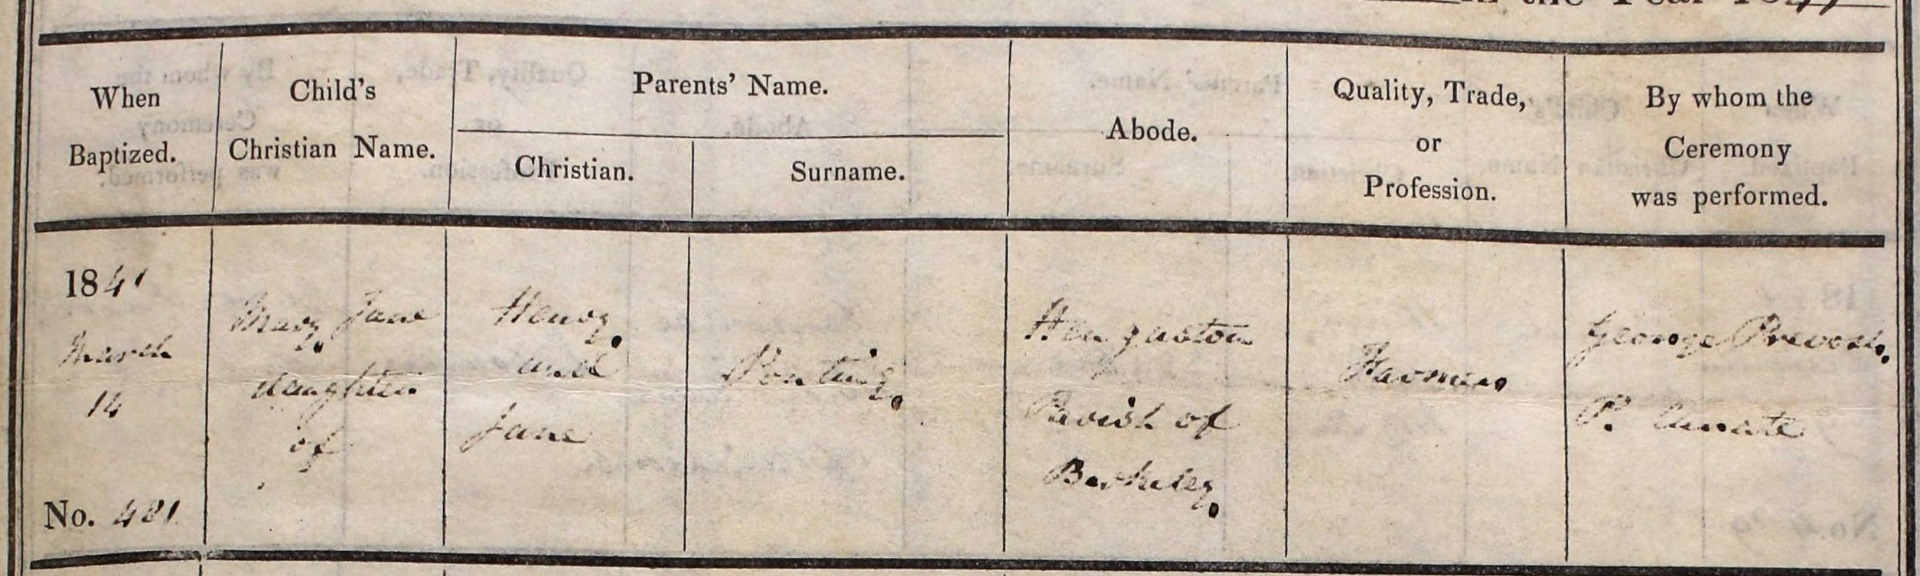 in the Year 1841
When Baptized.
Child's Christian Name.
Parents' Name.
Christian.
Surname.
Abode.
Quality, Trade, or Profession.
By whom the Ceremony was performed.
1841
March
14
No. 481
Mary Jane
daughter
of
Henry
and
Jane
Ponting.
Parish of
Berkeley.
Farmer
George Prevost.
P. Curate